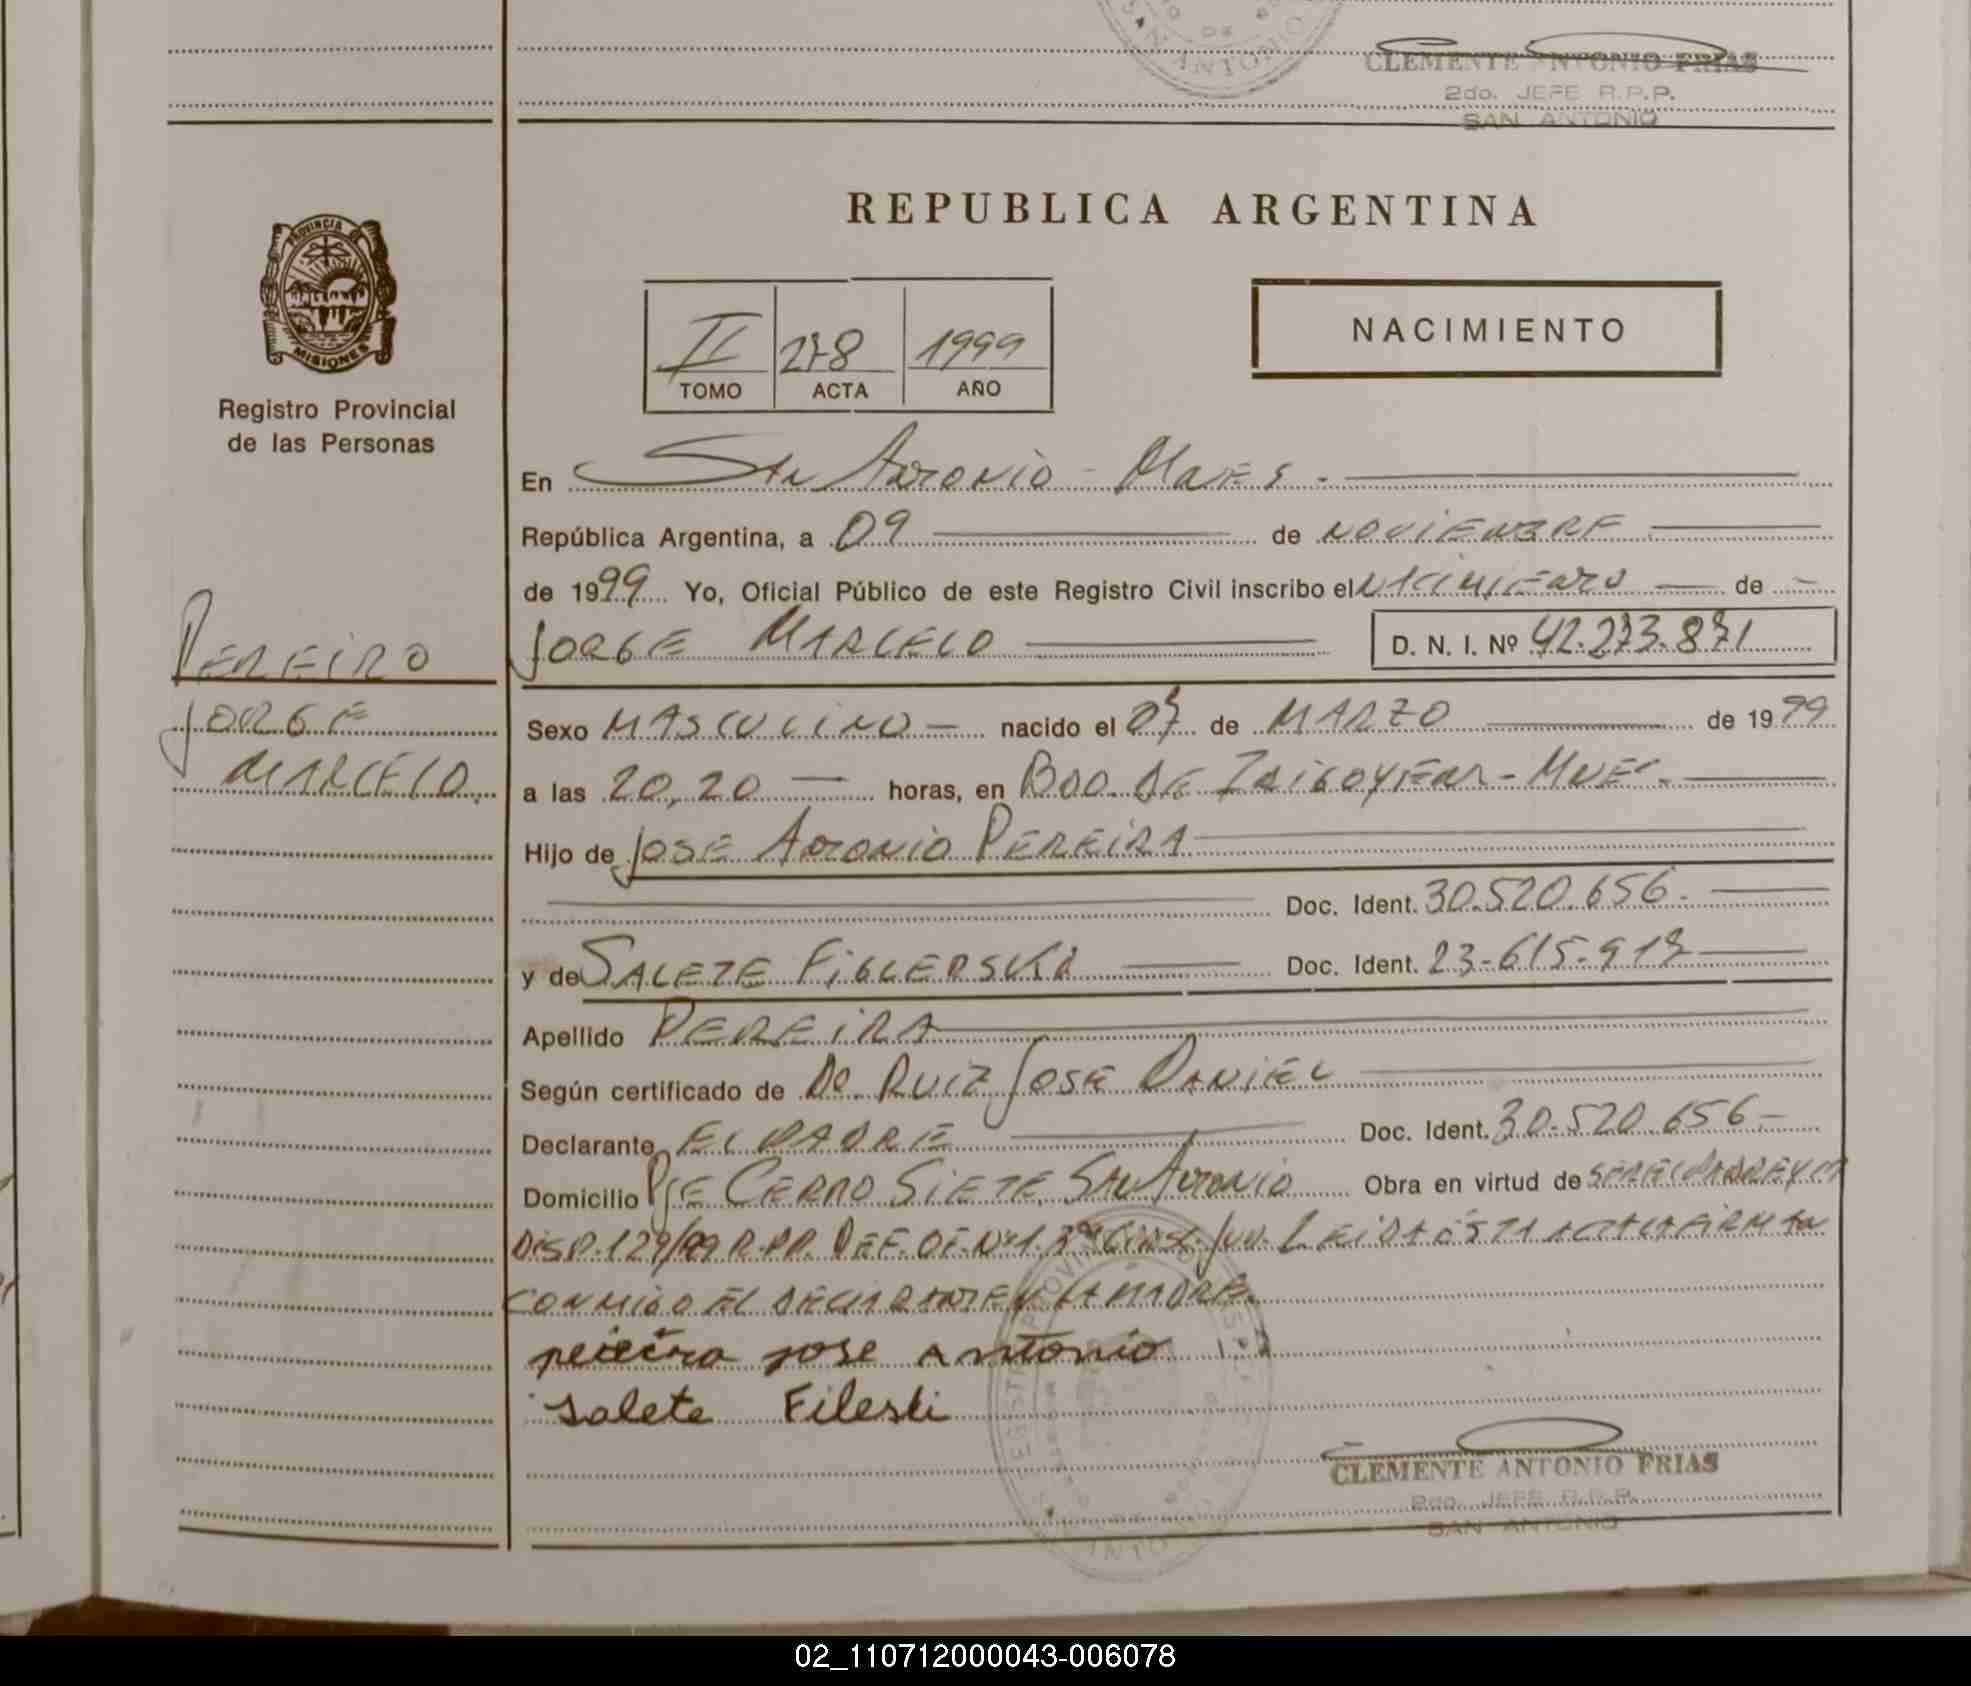 SAN ANTONIO
CLEMENTE ANTONIO FRIAS
2do. JEFE R.P.P.
SAN ANTONIO
REPUBLICA ARGENTINA
PROVINCIA DE
MISIONES
Registro Provincial
de las Personas
II 278 1999
TOMO ACTA AÑO
NACIMIENTO
En San Antonio - Mnes.
República Argentina, a 09 de NOVIEMBRE
de 1999 Yo, Oficial Público de este Registro Civil inscribo el NACIMIENTO de
JORGE MARCELO D. N. I. Nº 42.273.871
PEREIRO
JORGE
MARCELO.
Sexo MASCULINO nacido el 07 de MARZO de 1999
a las 20,20 horas, en BDO. DE IRIGOYEN - MNES.
Hijo de JOSE ANTONIO PEREIRA
Doc. Ident. 30.520.656.
y de SALETE FIGLERSKI Doc. Ident. 23-615-917
Apellido PEREIRA
Según certificado de DR. RUIZ JOSE DANIEL
Declarante EL PADRE Doc. Ident. 30.520.656-
Domicilio PJE CERRO SIETE, SAN ANTONIO Obra en virtud de SER EL PADRE Y LA
DISP. 129/99 R.P.P. DEF. OF. Nº 1. 3ra CIRSC. JUD. LEIDA ESTA ACTA LA FIRMAN
CONMIGO EL DECLARANTE Y LA MADRE.
pereira jose Antonio
salete Fileski
CLEMENTE ANTONIO FRIAS
2do. JEFE R.P.P.
SAN ANTONIO
02_110712000043-006078